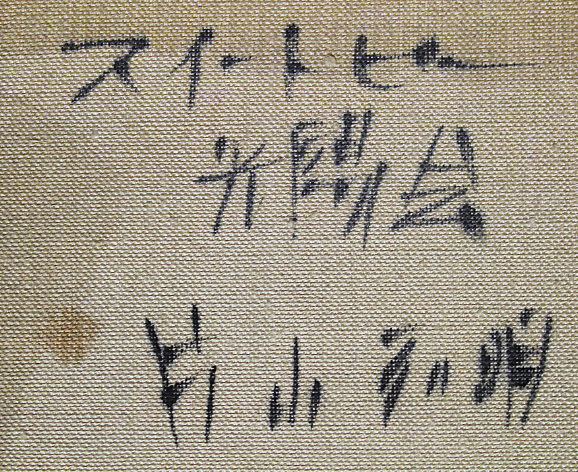 スイートピー
光陽会
片山和明